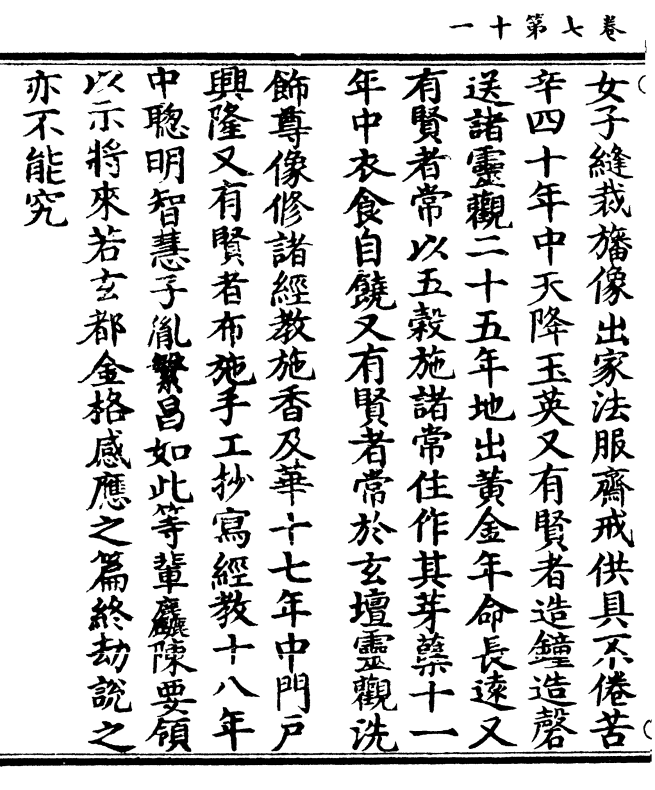 卷七第十一
女子縫裁旛像出家法服齋戒供具不倦苦
辛四十年中天降玉英又有賢者造鐘造磬
送諸靈觀二十五年地出黃金年命長遠又
有賢者常以五穀施諸常住作其芽蘖十一
年中衣食自饒又有賢者常於玄壇靈觀洗
飾尊像修諸經教施香及華十七年中門戶
興隆又有賢者布施手工抄寫經教十八年
中聰明智慧子胤繁昌如此等輩麤陳要領
以示將來若玄都金格感應之篇終劫說之
亦不能究